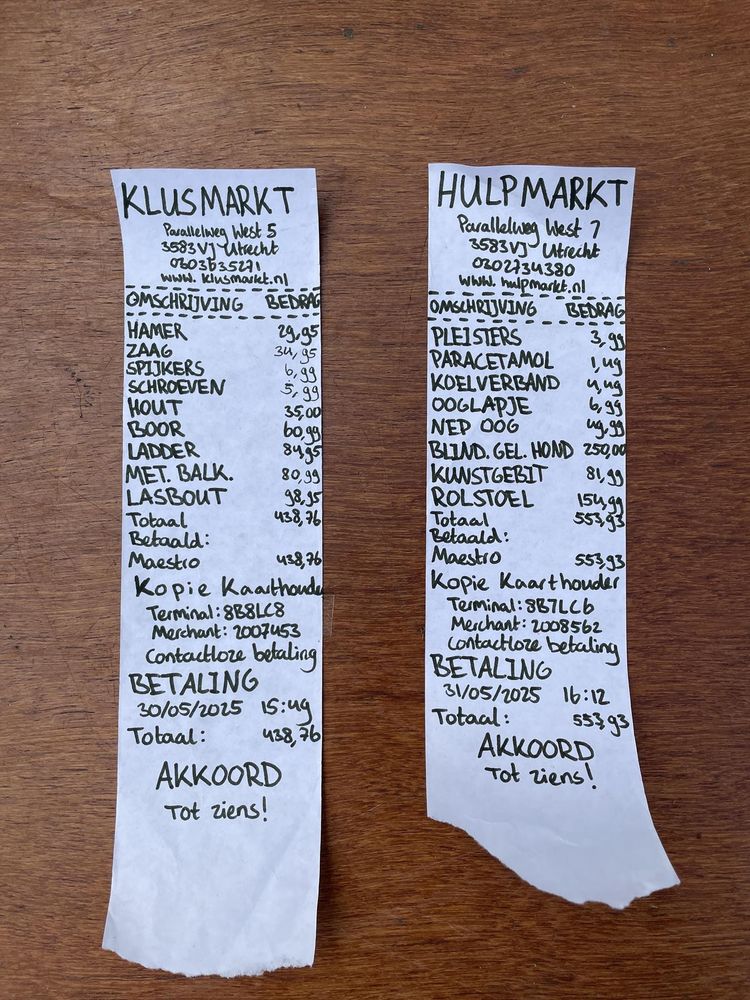 KLUSMARKT
Parallelweg West 5
3583VJ Utrecht
0303635271
www.klusmarkt.nl
OMSCHRIJVING BEDRAG
HAMER 29,95
ZAAG 34,95
SPIJKERS 6,99
SCHROEVEN 5,99
HOUT 35,00
BOOR 60,99
LADDER 84,95
MET. BALK. 80,99
LASBOUT 98,95
Totaal 438,76
Betaald:
Maestro 438,76
Kopie Kaarthouder
Terminal: 8B8LC8
Merchant: 2007453
Contactloze betaling
BETALING
30/05/2025 15:49
Totaal: 438,76
AKKOORD
Tot ziens!
HULPMARKT
Parallelweg West 7
3583VJ Utrecht
0302734380
www.hulpmarkt.nl
OMSCHRIJVING BEDRAG
PLEISTERS 3,99
PARACETAMOL 1,49
KOELVERBAND 4,49
OOGLAPJE 6,99
NEP OOG 49,99
BLIND. GEL. HOND 250,00
KUNSTGEBIT 81,99
ROLSTOEL 154,99
Totaal 553,93
Betaald:
Maestro 553,93
Kopie Kaarthouder
Terminal: 8B7LC6
Merchant: 2008562
Contactloze betaling
BETALING
31/05/2025 16:12
Totaal: 553,93
AKKOORD
Tot ziens!